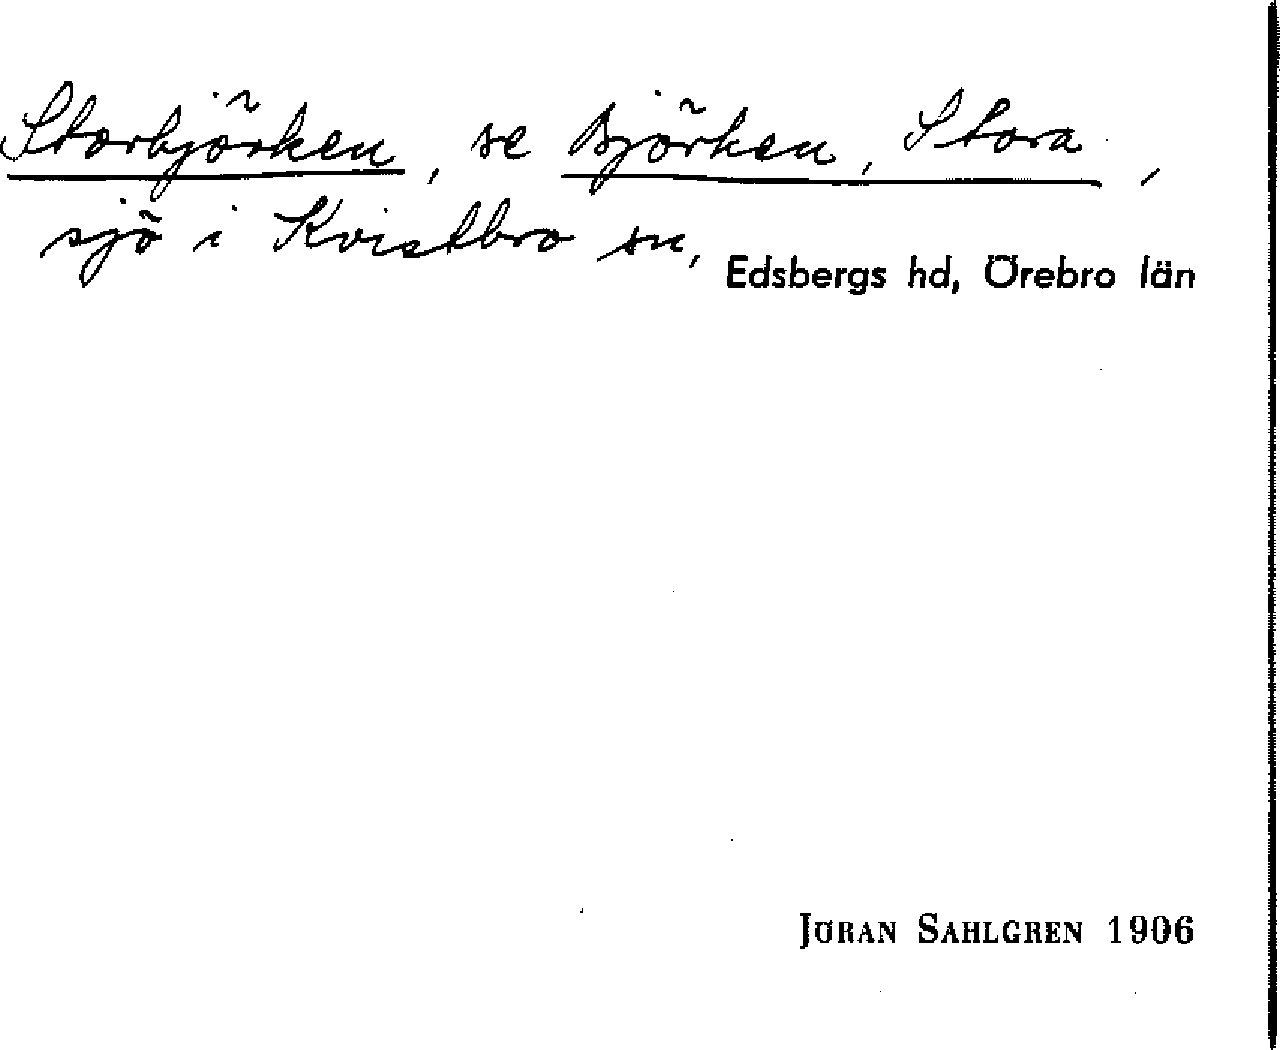 Storbjörken, se Björken, Stora,
sjö i Kvistbro sn, Edsbergs hd, Örebro län
JÖRAN SAHLGREN 1906